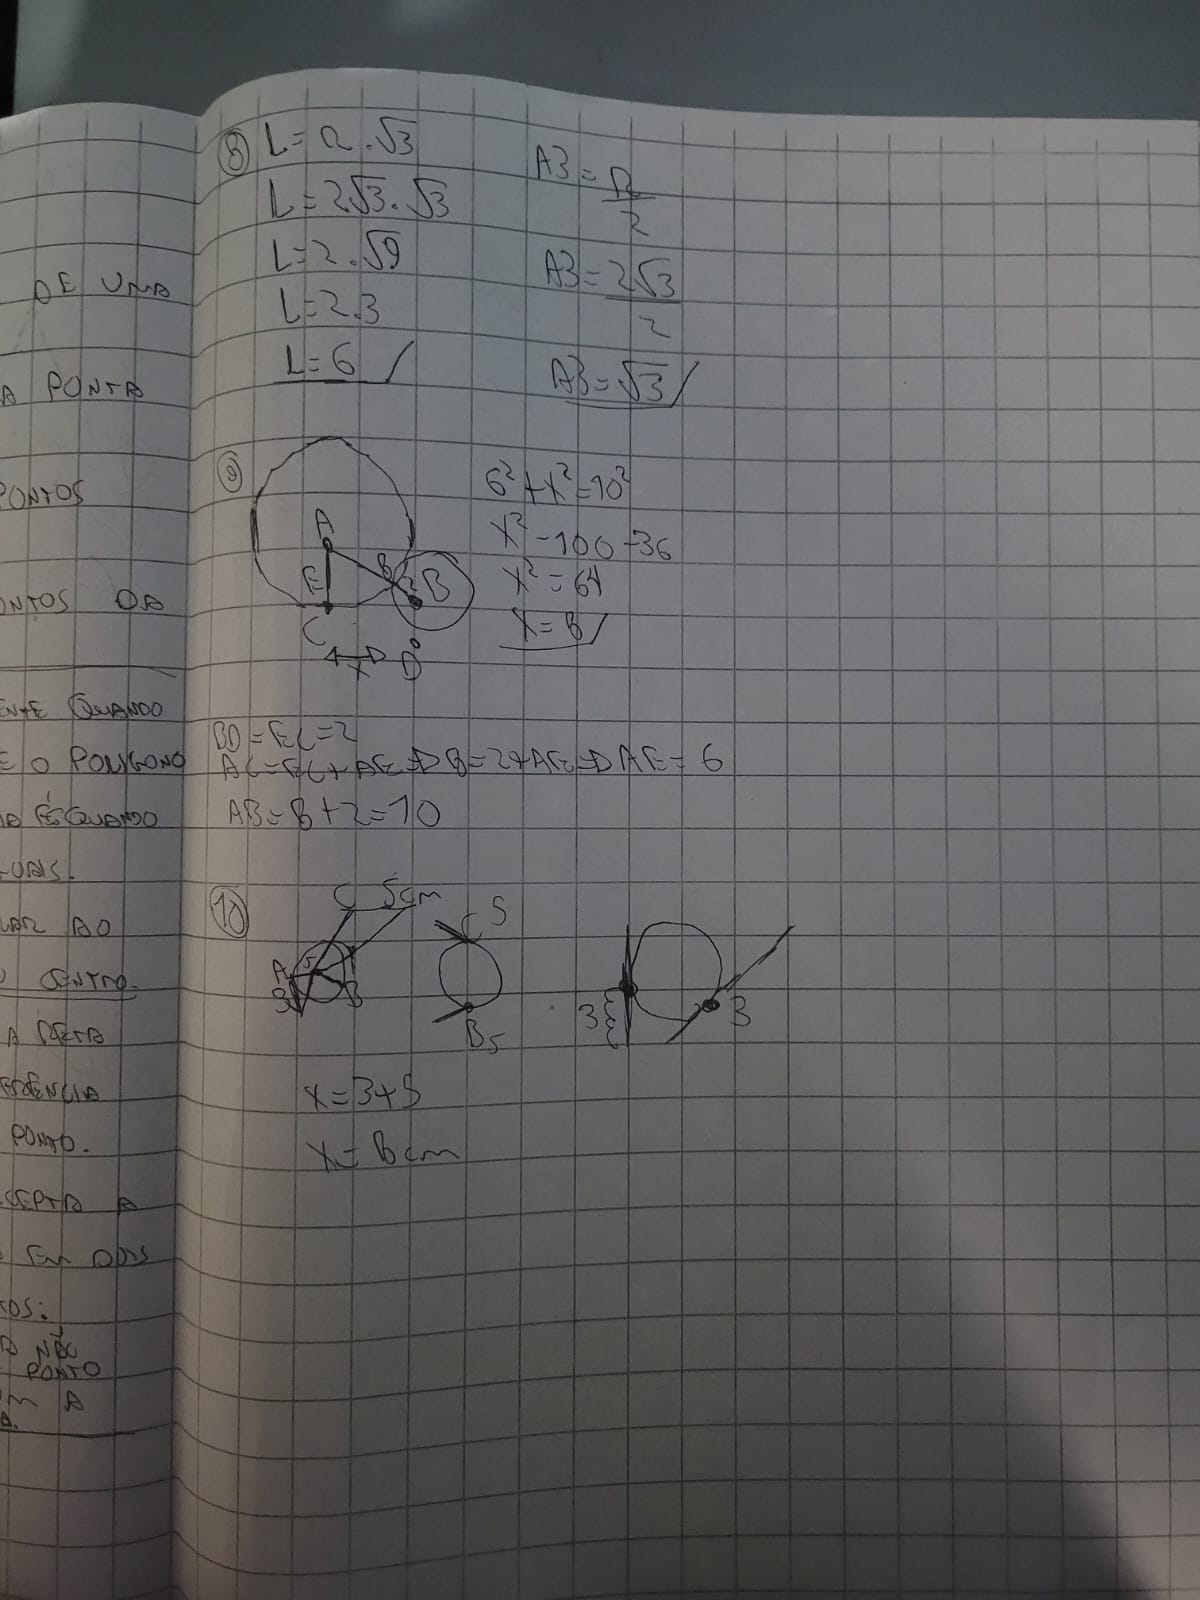 DE UMA
A PONTA
PONTOS
ONTOS DA
ENTE QUANDO
E O POLIGONO
QUANDO
LAR AO
CENTRO.
A RETA
PONTO.
A
EM DOIS
TOS:
NÃO
PONTO
M A
A.
8 L = R . √3
L = 2√3 . √3
L = 2 . √9
L = 2.3
L = 6
A3 = R
2
A3 = 2√3
2
A3 = √3
9
A
E
8
2
B
C
X
D
6² + X² = 10²
X² = 100 - 36
X² = 64
X = 8
BD = EC = 2
AC = EC + AE => 8 = 2 + AE => AE = 6
AB = 8 + 2 = 10
10
C 5cm
A
5
3
B
C 5
B 5
3
3
X = 3 + 5
X = 8 cm